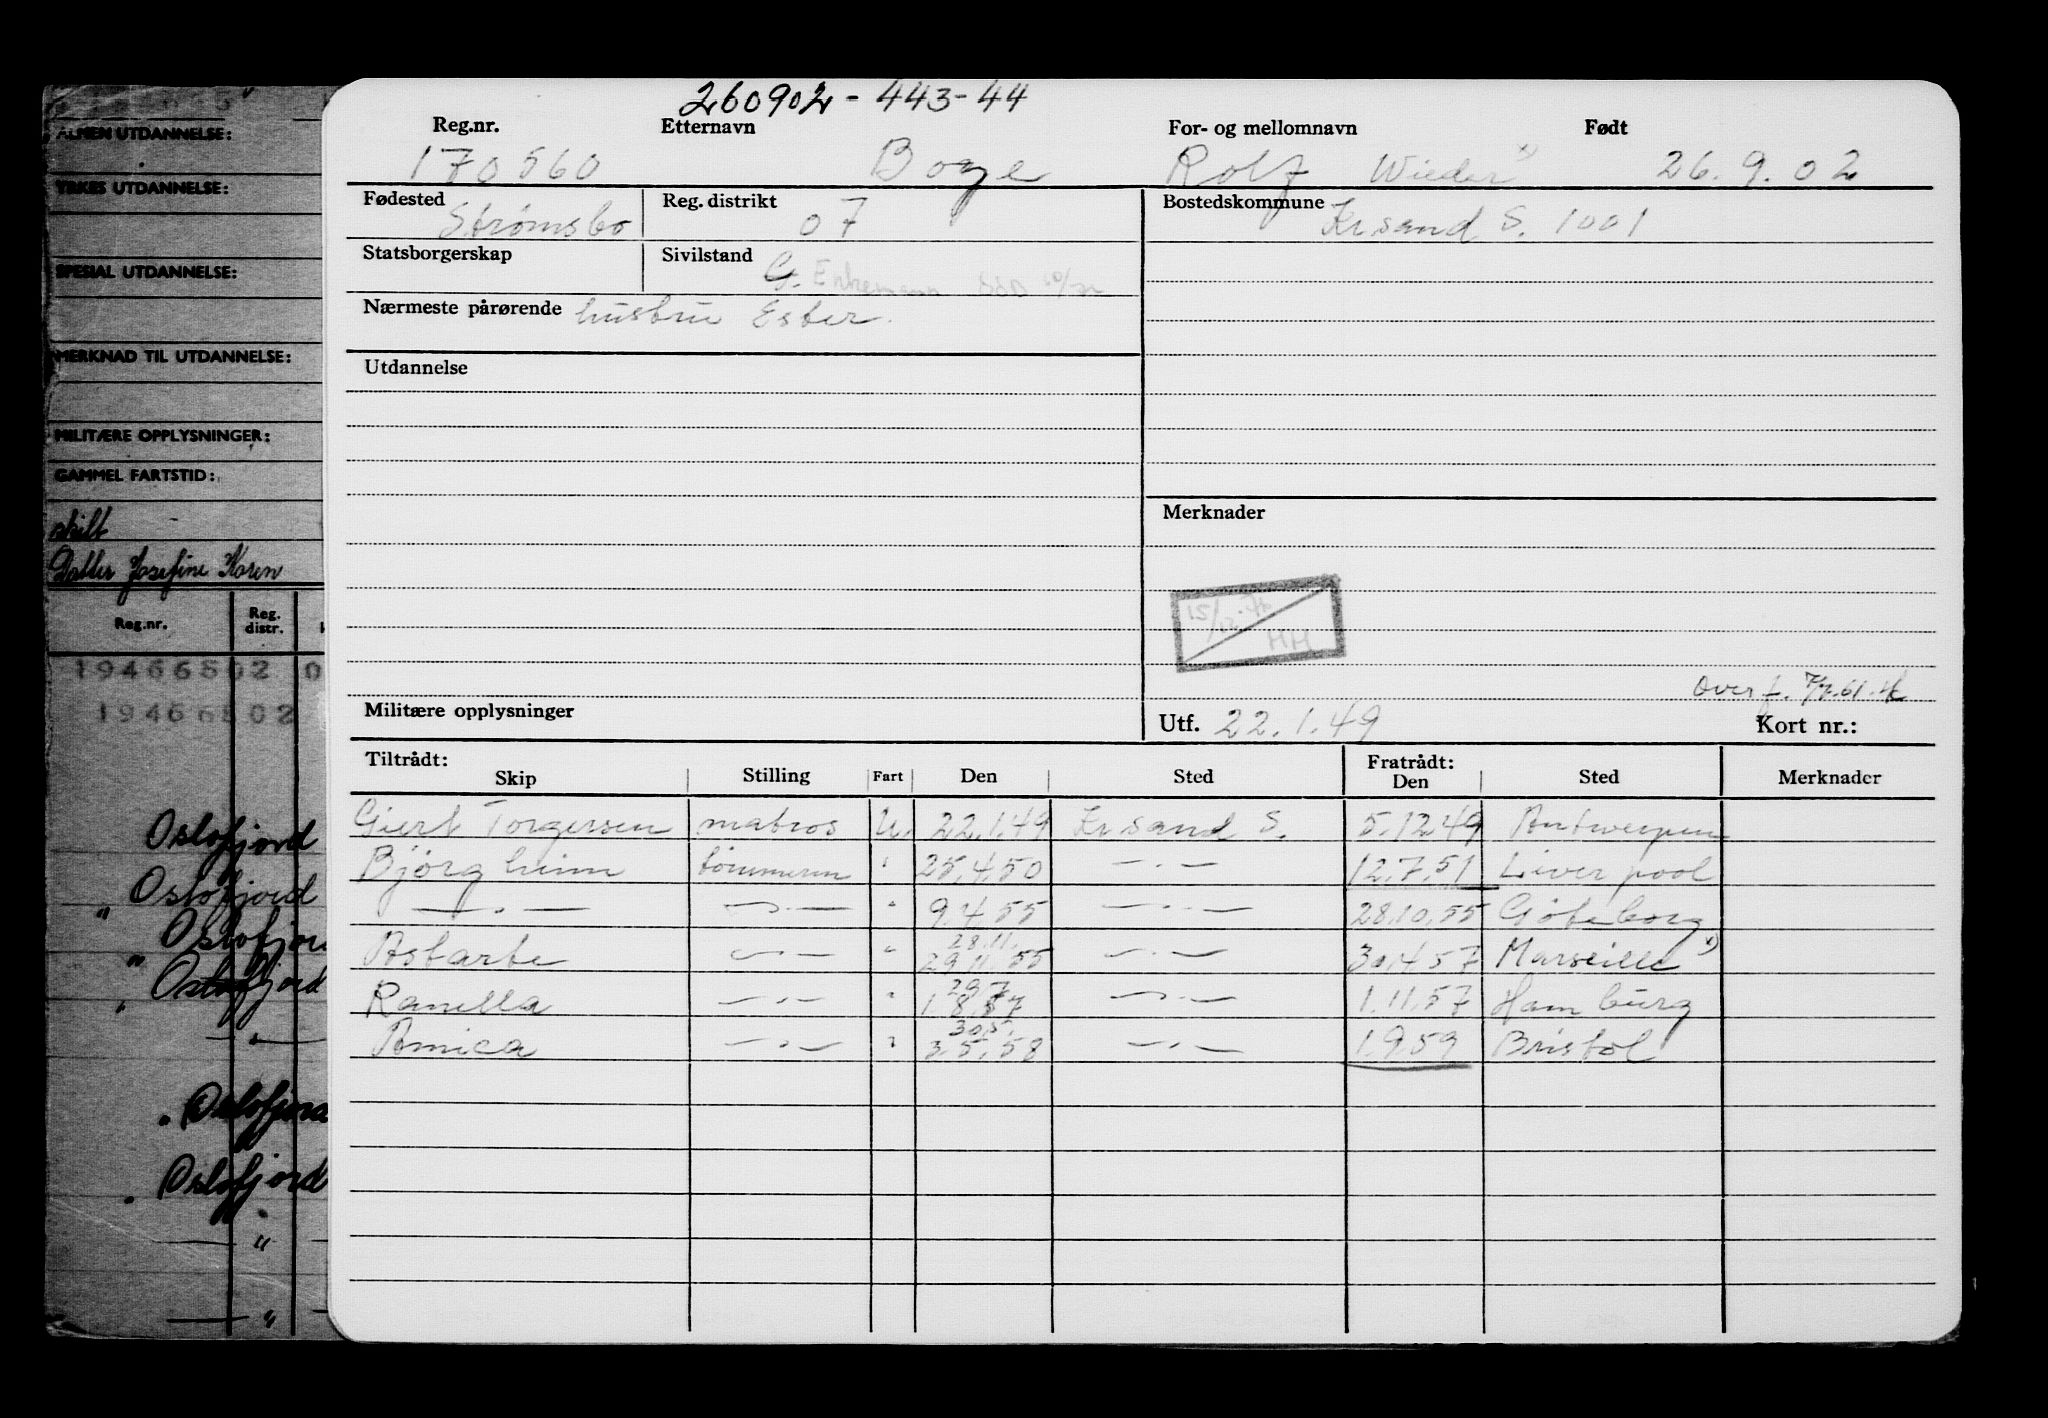 260902-443-44
Reg.nr. Etternavn For- og mellomnavn Født
170560 Boye Rolf Wieder x) 26.9.02
Fødested Strømsbo Reg. distrikt 07 Bostedskommune Kr.sand S. 1001
Statsborgerskap Sivilstand G. Enkemann
Nærmeste pårørende hustru Ester.
Utdannelse
Merknader
15/12.76
HH
Overf. 7/7.61.
Militære opplysninger Utf. 22.1.49 Kort nr.:
Tiltrådt: Fratrådt:
Skip Stilling Fart Den Sted Den Sted Merknader
Giert Torgersen matros U. 22.1.49 Kr.sand S. 5.12.49 Antwerpen
Bjørgheim tømmerm " 25.4.50 — " — 12.7.51 Liverpool
— " — — " — " 9.4.55 — " — 28.10.55 Göteborg
28.11.
Astarte — " — " 29.11.55 — " — 30.4.57 Marseille x)
29.7
Ranella — " — " 1.8.57 — " — 1.11.57 Hamburg
30.5.
Amica — " — " 3.5.58 — " — 1.9.59 Bristol
ALMEN UTDANNELSE:
YRKES UTDANNELSE:
SPESIAL UTDANNELSE:
MERKNAD TIL UTDANNELSE:
MILITÆRE OPPLYSNINGER:
GAMMEL FARTSTID:
skilt
Datter Josefine Karen
Reg.nr. Reg. distr.
19466502 0
19466502
Oslofjord
Oslofjord
" Oslofjord
" Oslofjord
— " —
" Oslofjord
" Oslofjord
— " —
— "